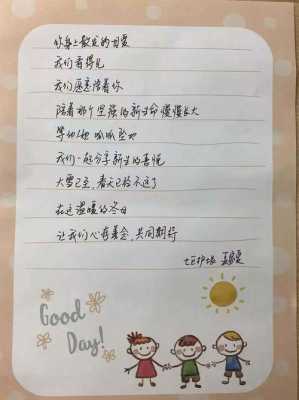 你身上散发的母爱
我们看得见
我们愿意陪着你
陪着那个坚强的新生命慢慢长大
等他/她呱呱坠地
我们一起分享新生的喜悦
大雪已至,春天已拾不远了
在这温暖的冬日
让我们心存善念,共同期待
七区护士
Good
Day!